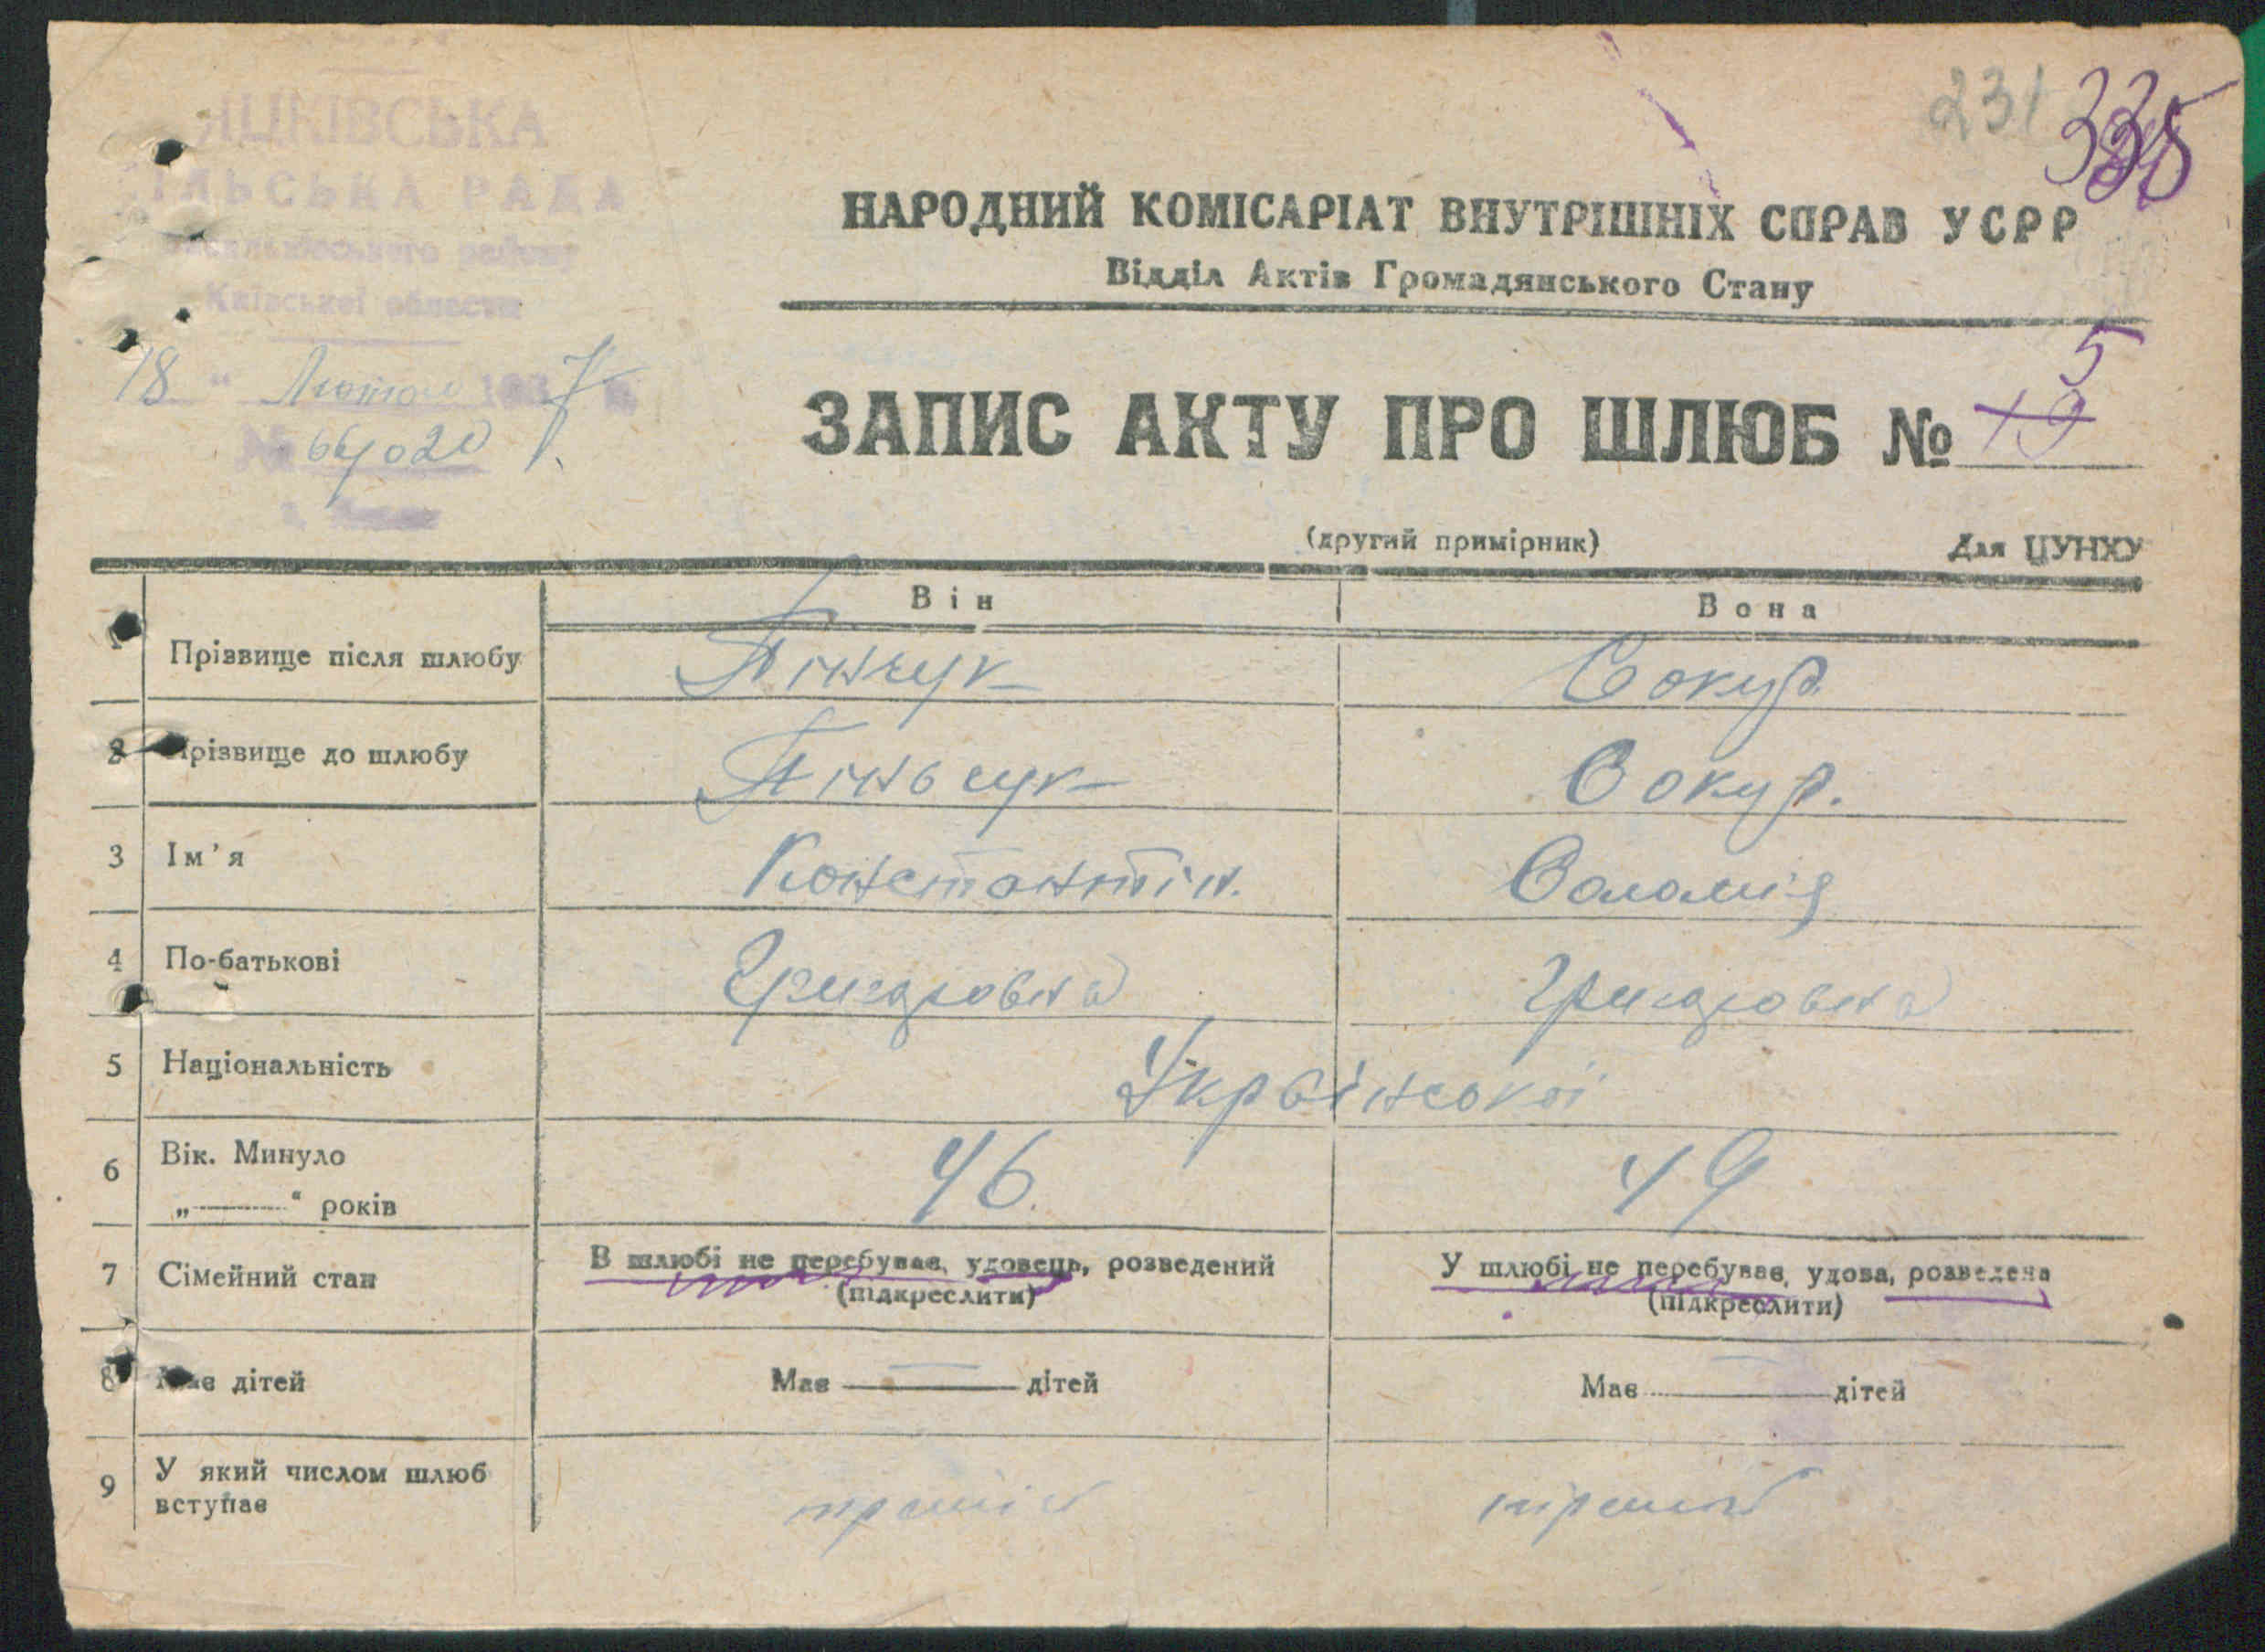 ЯЦКІВСЬКА
СІЛЬСЬКА РАДА
району
Київської области
231 335
НАРОДНИЙ КОМІСАРІАТ ВНУТРІШНІХ СПРАВ УСРР
Відділ Актів Громадянського Стану
18 " Лютого 1937 р.
№
ЗАПИС АКТУ ПРО ШЛЮБ № 19 5
(другий примірник) Для ЦУНХУ
Він Вона
1 Прізвище після шлюбу Пінчук Сокур
2 Прізвище до шлюбу Піньчук Сокур.
3 Ім'я Константін. Соломія
4 По-батькові Григоровна Григоровна
5 Національність Української
6 Вік. Минуло 46. 49
„ — “ років
7 Сімейний стан В шлюбі не перебуває, удовець, розведений У шлюбі не перебуває, удова, розведена
(підкреслити) (підкреслити)
8 Має дітей Має — дітей Має — дітей
9 У який числом шлюб
вступає